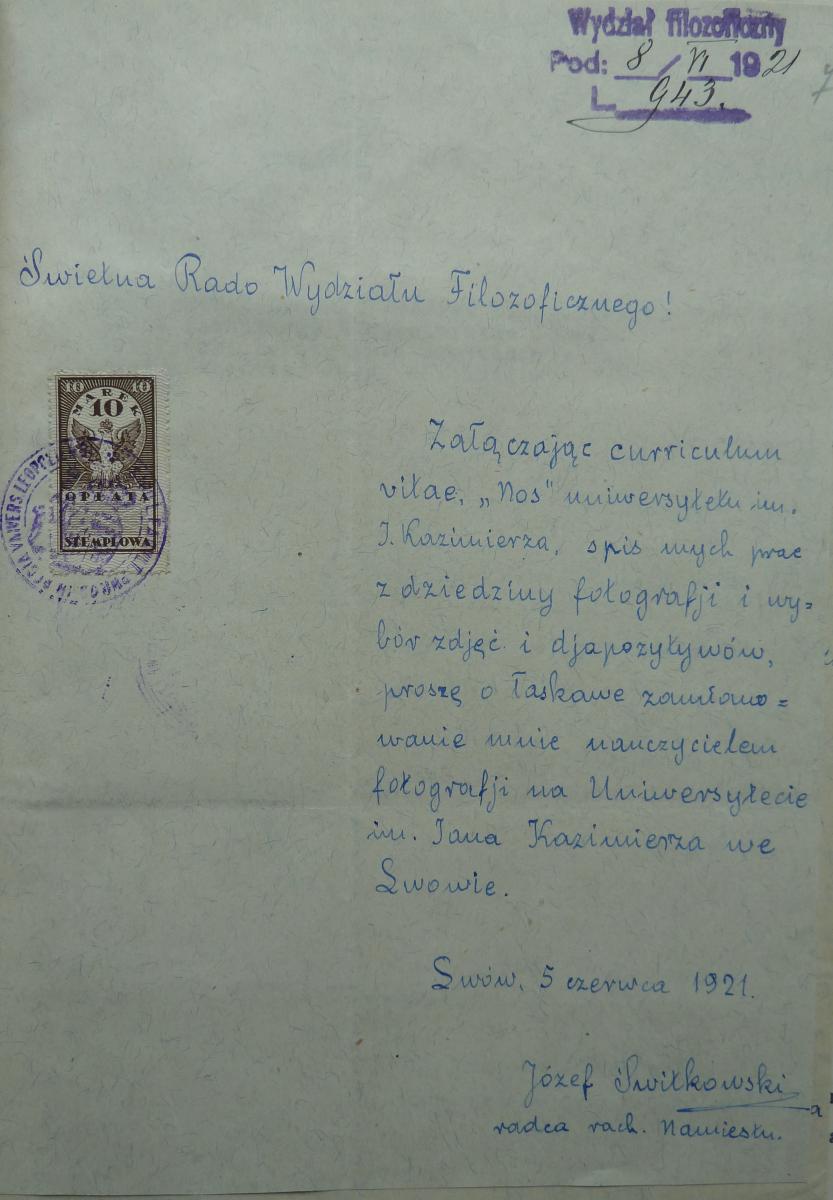 Wydział filozoficzny
Pod: 8/VI 1921
L. 943.
Świetna Rado Wydziału Filozoficznego!
10 10
MAREK
10
OPŁATA
STEMPLOWA
Załączając curriculum
vitae, „Nos" uniwersytetu im.
J. Kazimierza, spis mych prac
z dziedziny fotografji i wy=
bór zdjęć i djapozytywów,
proszę o łaskawe zamiano=
wanie mnie nauczycielem
fotografji na Uniwersytecie
im. Jana Kazimierza we
Lwowie.
Lwów, 5 czerwca 1921.
Józef Świtkowski
radca rach. Namiestn.